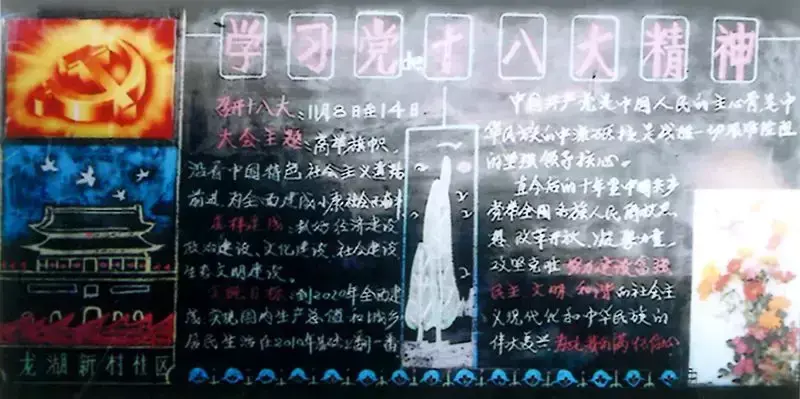 学习党de十八大精神
召开十八大:11月8日至14日
大会主题:高举旗帜,
沿着中国特色社会主义道路
前进 为全面建成小康社会而奋斗
怎样建成:搞好经济建设
政治建设、文化建设、社会建设
生态文明建设。
实现目标:到2020年全面建
成,实现国内生产总值和城乡
居民生活在2010年基础上翻一番
中国共产党是中国人民的主心骨是中
华民族的中流砥柱是战胜一切艰难险阻
的坚强领导核心。
在今后的十年里中国共产
党带全国各族人民解放思
想 改革开放、凝聚力量、
攻坚克难 努力建设富强
民主 文明 和谐的社会主
义现代化和中华民族的
伟大复兴
龙湖新村社区